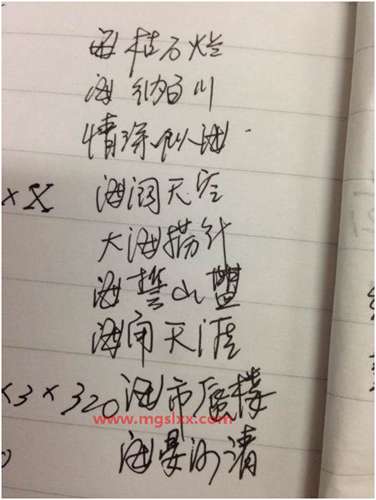 海枯石烂
海纳百川
情深似海.
× X 海阔天空
大海捞针
海誓山盟
海角天涯
×3×320 海市蜃楼
www.mgslxx.com
海晏河清